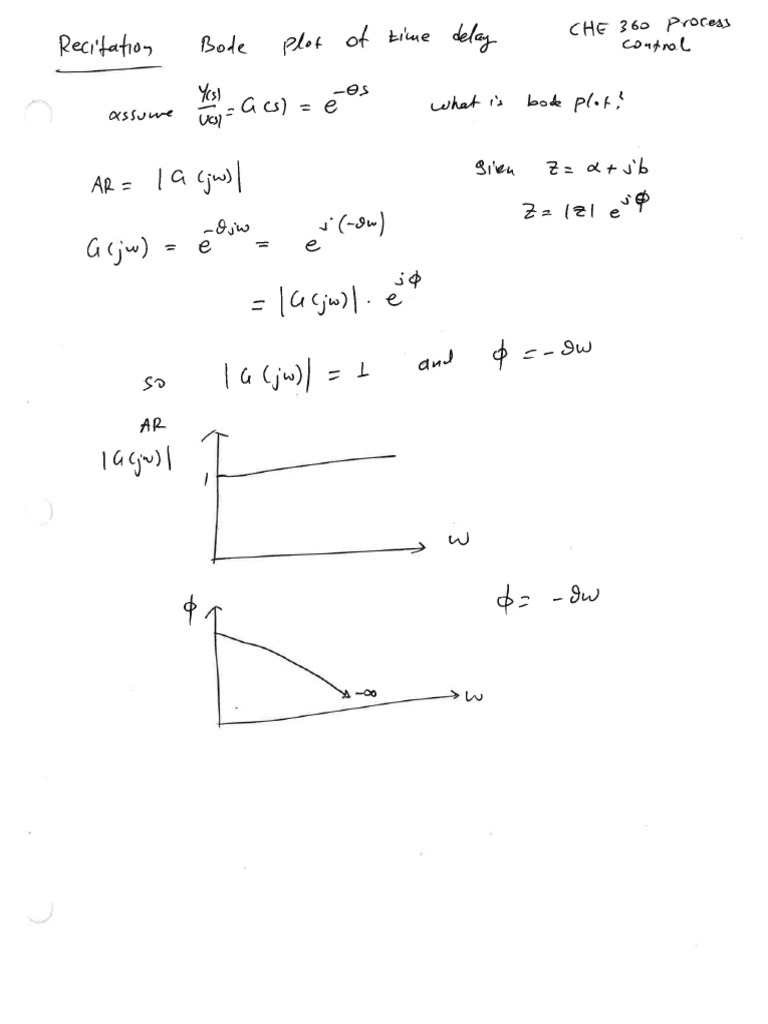 Recitation Bode plot of time delay CHE 360 Process control
assume Y(s)/U(s) = G(s) = e^-θs what is bode plot?
AR = |G(jw)| Given z = a + jb
z = |z| e^jϕ
G(jw) = e^-θjw = e^j(-θw)
= |G(jw)| . e^jϕ
so |G(jw)| = 1 and ϕ = -θw
AR
|G(jw)|
1
w
ϕ ϕ = -θw
-∞ w